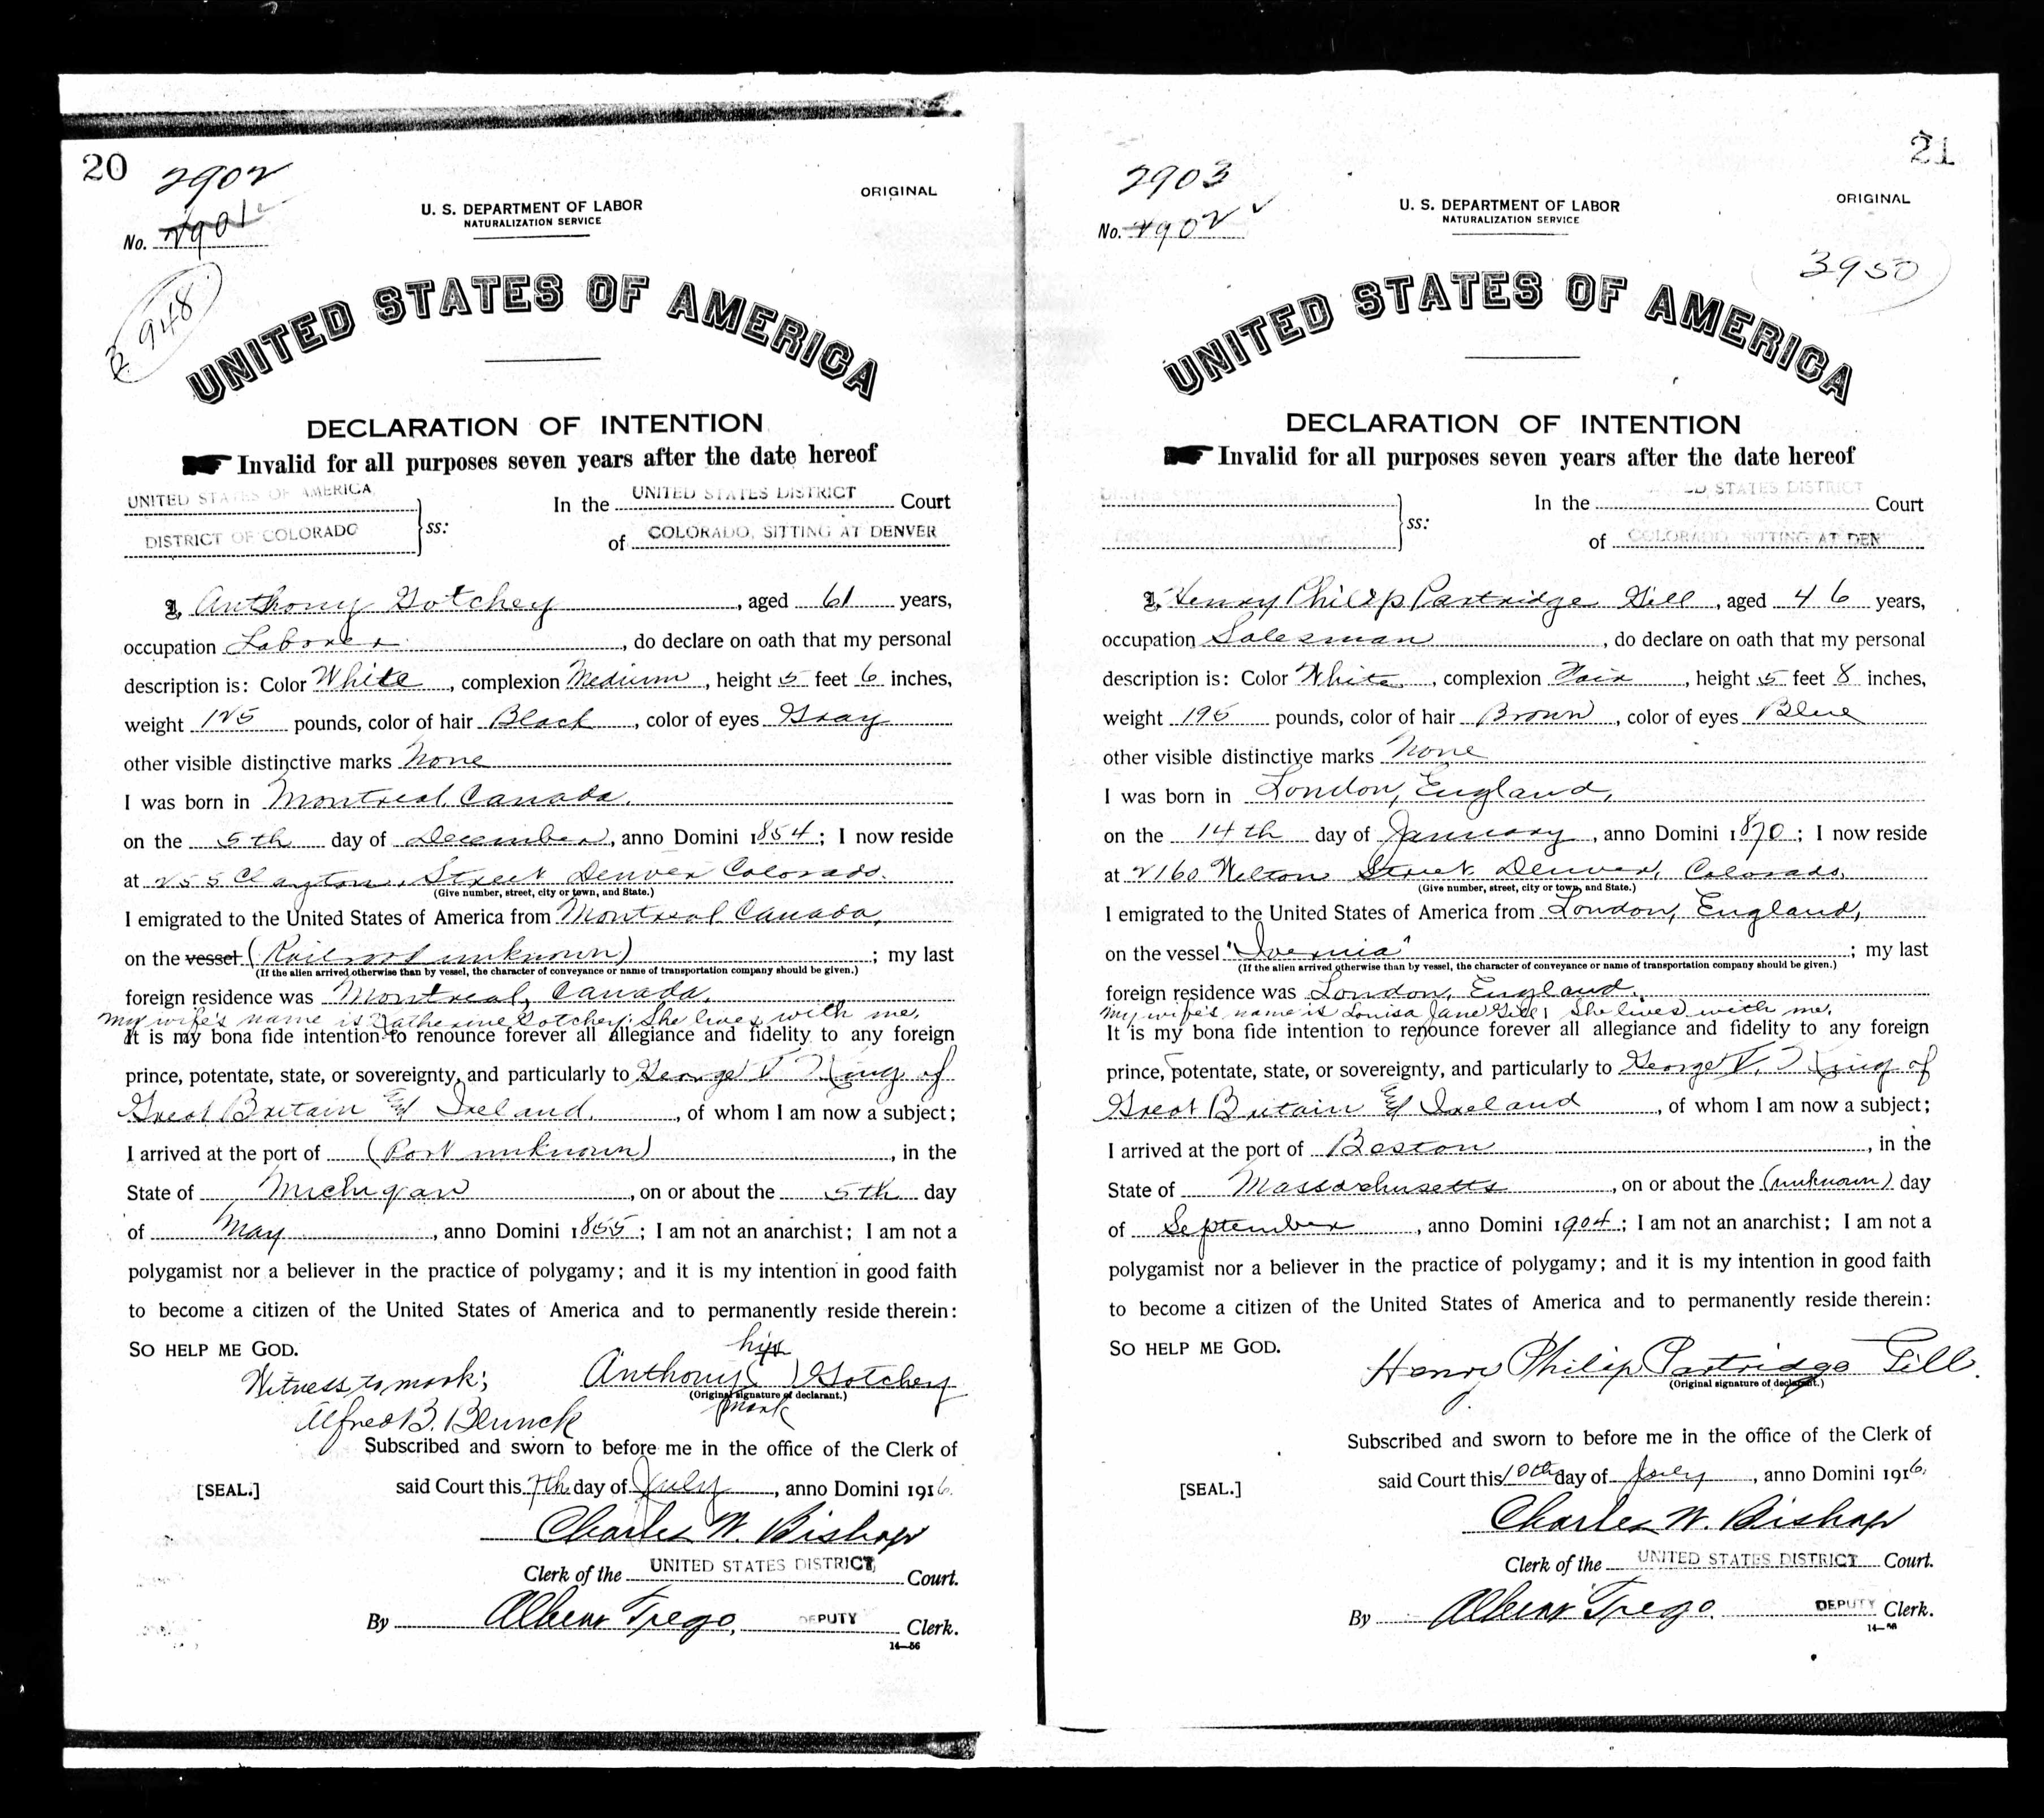 20
2902
No. 2901
ORIGINAL
U. S. DEPARTMENT OF LABOR
NATURALIZATION SERVICE
3948
UNITED STATES OF AMERICA
DECLARATION OF INTENTION
Invalid for all purposes seven years after the date hereof
UNITED STATES OF AMERICA
DISTRICT OF COLORADO
ss:
In the UNITED STATES DISTRICT Court
of COLORADO, SITTING AT DENVER
I, Anthony Gotchey, aged 61 years,
occupation Laborer, do declare on oath that my personal
description is: Color White, complexion Medium, height 5 feet 6 inches,
weight 125 pounds, color of hair Black, color of eyes Gray
other visible distinctive marks None
I was born in Montreal, Canada.
on the 5th day of December, anno Domini 1854; I now reside
at 255 Clayton, Street Denver Colorado.
(Give number, street, city or town, and State.)
I emigrated to the United States of America from Montreal Canada,
on the vessel (Railroad unknown); my last
(If the alien arrived otherwise than by vessel, the character of conveyance or name of transportation company should be given.)
foreign residence was Montreal, Canada.
My wife's name is Katherine Gotchey: She lives with me.
It is my bona fide intention to renounce forever all allegiance and fidelity to any foreign
prince, potentate, state, or sovereignty, and particularly to George V King of
Great Britain & Ireland., of whom I am now a subject;
I arrived at the port of (Port unknown), in the
State of Michigan, on or about the 5th day
of May, anno Domini 1855; I am not an anarchist; I am not a
polygamist nor a believer in the practice of polygamy; and it is my intention in good faith
to become a citizen of the United States of America and to permanently reside therein:
SO HELP ME GOD.
his
Witness to mark; Anthony ( ) Gotchey
(Original signature of declarant.)
mark
Alfred B.
Subscribed and sworn to before me in the office of the Clerk of
[SEAL.] said Court this 7th day of July, anno Domini 1916.
Charles W. Bishop
Clerk of the UNITED STATES DISTRICT Court.
By Albert Trego, DEPUTY Clerk.
14—56
21
2903
No. 2902
ORIGINAL
U. S. DEPARTMENT OF LABOR
NATURALIZATION SERVICE
3950
UNITED STATES OF AMERICA
DECLARATION OF INTENTION
Invalid for all purposes seven years after the date hereof
ss:
In the STATES DISTRICT Court
of COLORADO, SITTING AT DEN
I, Henry Philip Partridge Gill, aged 46 years,
occupation Salesman, do declare on oath that my personal
description is: Color White, complexion Fair, height 5 feet 8 inches,
weight 195 pounds, color of hair Brown, color of eyes Blue
other visible distinctive marks None
I was born in London, England,
on the 14th day of January, anno Domini 1870; I now reside
at 2160 Welton Street Denver, Colorado.
(Give number, street, city or town, and State.)
I emigrated to the United States of America from London, England,
on the vessel "Ivernia"; my last
(If the alien arrived otherwise than by vessel, the character of conveyance or name of transportation company should be given.)
foreign residence was London, England.
My wife's name is Louisa Jane Gill; She lives with me.
It is my bona fide intention to renounce forever all allegiance and fidelity to any foreign
prince, potentate, state, or sovereignty, and particularly to George V. King of
Great Britain & Ireland, of whom I am now a subject;
I arrived at the port of Boston, in the
State of Massachusetts, on or about the (unknown) day
of September, anno Domini 1904; I am not an anarchist; I am not a
polygamist nor a believer in the practice of polygamy; and it is my intention in good faith
to become a citizen of the United States of America and to permanently reside therein:
SO HELP ME GOD.
Henry Philip Partridge Gill.
(Original signature of declarant.)
Subscribed and sworn to before me in the office of the Clerk of
[SEAL.] said Court this 10th day of July, anno Domini 1916.
Charles W. Bishop
Clerk of the UNITED STATES DISTRICT Court.
By Albert Trego. DEPUTY Clerk.
14—56